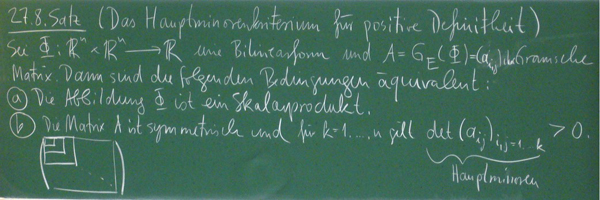 27.8. Satz (Das Hauptminorenkriterium für positive Definitheit)
Sei Φ: ℝⁿ × ℝⁿ → ℝ eine Bilinearform und A = G_E(Φ) = (a_ij) die Gramsche
Matrix. Dann sind die folgenden Bedingungen äquivalent:
ⓐ Die Abbildung Φ ist ein Skalarprodukt.
ⓑ Die Matrix A ist symmetrisch und für k=1...,n gilt det (a_ij)_{i,j=1...k} > 0.
Hauptminoren